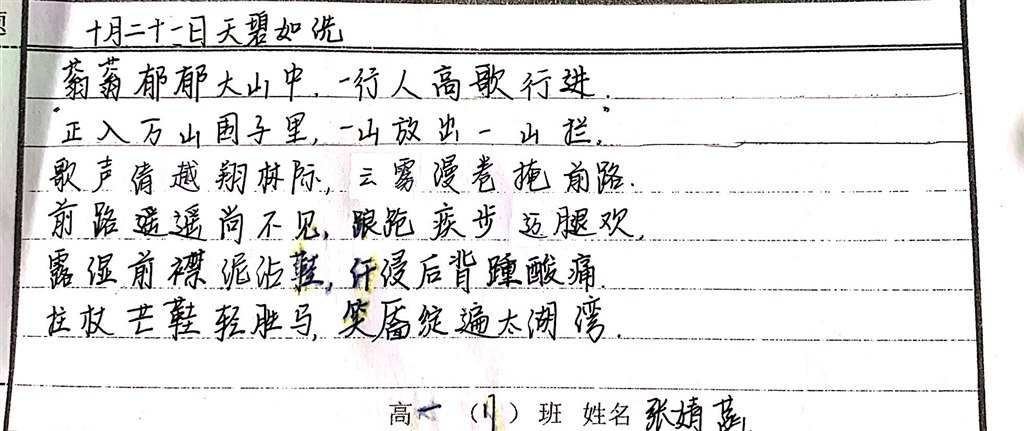 题
十月二十一日天碧如洗
蓊蓊郁郁大山中,一行人高歌行进.
"正入万山围子里,一山放出一山拦。"
歌声清越翔林际,云雾漫卷掩前路.
前路遥遥尚不见,踉跄疾步迈腿欢,
露湿前襟泥沾鞋,汗浸后背踵酸痛.
拄杖芒鞋轻胜马,笑靥绽遍太湖湾.
高一( )班 姓名 张婧菡